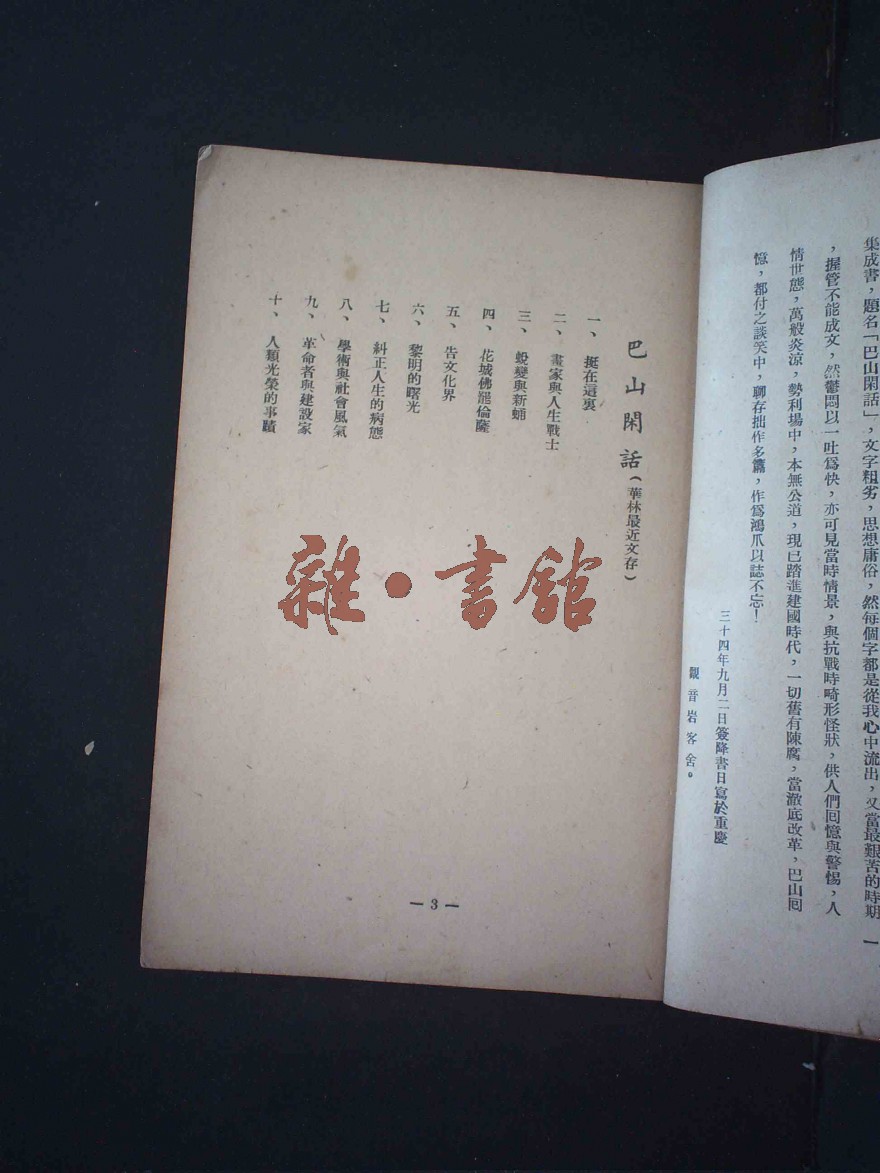 集成書，題名「巴山閑話」，文字粗劣，思想庸俗，然每個字都是從我心中流出，又當最艱苦的時期
，握管不能成文，然鬱悶以一吐爲快，亦可見當時情景，與抗戰時畸形怪狀，供人們回憶與警惕，人
情世態，萬般炎涼，勢利場中，本無公道，現已踏進建國時代，一切舊有陳腐，當澈底改革，巴山回
憶，都付之談笑中，聊存拙作多篇，作爲鴻爪以誌不忘！
三十四年九月二日簽降書日寫於重慶
觀音岩客舍。
巴山閑話（華林最近文存）
一、挺在這裏
二、畫家與人生戰士
三、蛻變與新蛹
四、花城佛羅倫薩
五、告文化界
六、黎明的曙光
七、糾正人生的病態
八、學術與社會風氣
九、革命者與建設家
十、人類光榮的事蹟
— 3 —
雜·書館